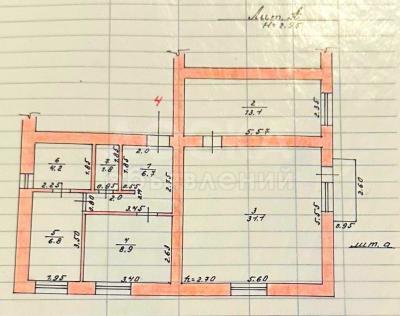 Лит. А
H=2.95
4
2
13.1
2.35
5.57
6
4.2
1.85
7
1.8
1.85
2.0
1
6.7
2.15
2.25
0.95
2.55
2.0
3.45
1.80
3
31.1
5.55
2.60
0.95
лит. а
5
6.8
3.50
4
8.9
2.63
1.95
3.40
h=2.70
5.60